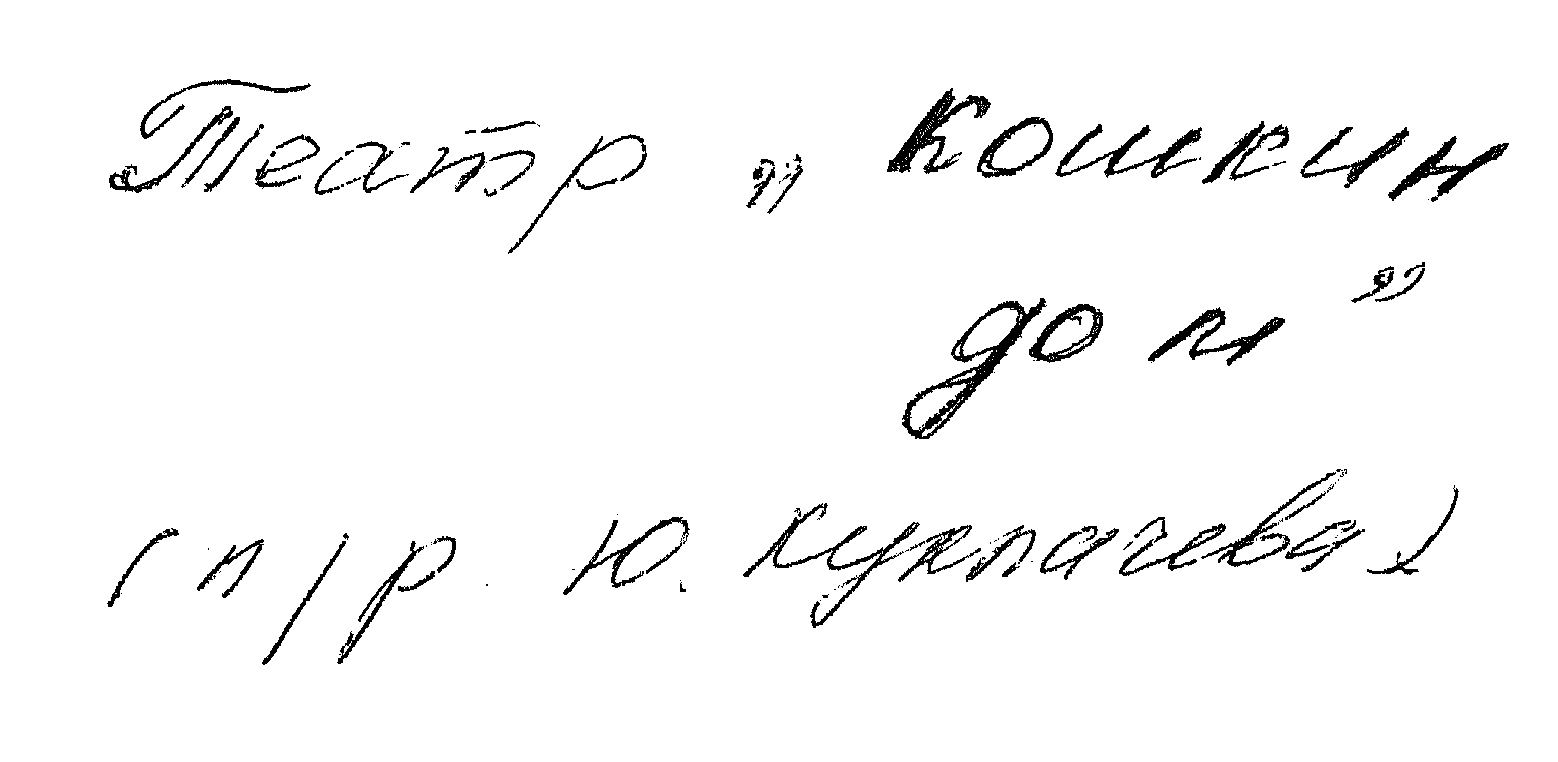 Театр „Кошкин
дом”
(п/р Ю. Куклачева)